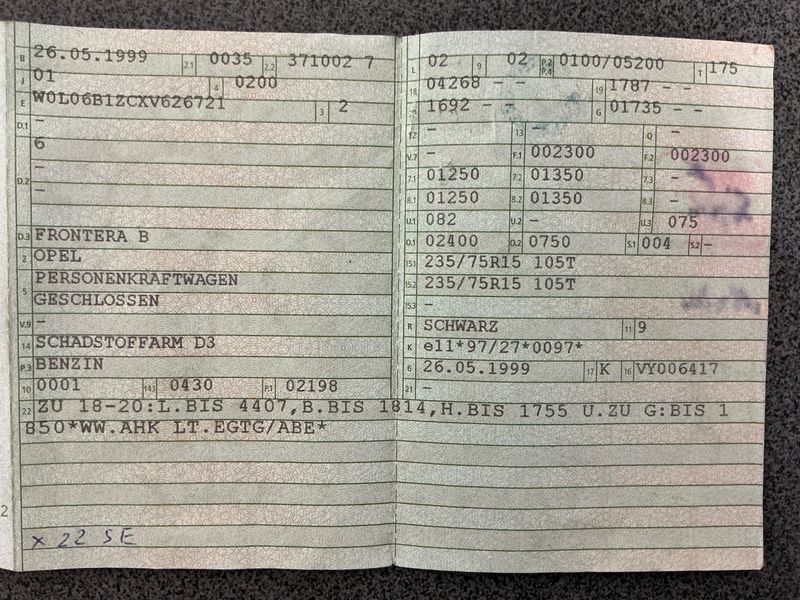 B 26.05.1999 2.1 0035 2.2 371002 7
J 01 4 0200
E W0L06B1ZCXV626721 3 2
D.1 –
6
–
D.2 –
D.3 FRONTERA B
2 OPEL
5 PERSONENKRAFTWAGEN
GESCHLOSSEN
V.9 –
14 SCHADSTOFFARM D3
P.3 BENZIN
10 0001 14.1 0430 P.1 02198
L 02 9 02 P.2 P.4 0100/05200 T 175
18 04268 – – 19 1787 – –
1692 – – G 01735 – –
12 – 13 – Q –
V.7 – F.1 002300 F.2 002300
7.1 01250 7.2 01350 7.3 –
8.1 01250 8.2 01350 8.3 –
U.1 082 U.2 – U.3 075
O.1 02400 O.2 0750 S.1 004 S.2 –
15.1 235/75R15 105T
15.2 235/75R15 105T
15.3 –
R SCHWARZ 11 9
K e11*97/27*0097*
6 26.05.1999 17 K 16 VY006417
21 –
22 ZU 18-20:L.BIS 4407,B.BIS 1814,H.BIS 1755 U.ZU G:BIS 1
850*WW.AHK LT.EGTG/ABE*
2
x 22 SE